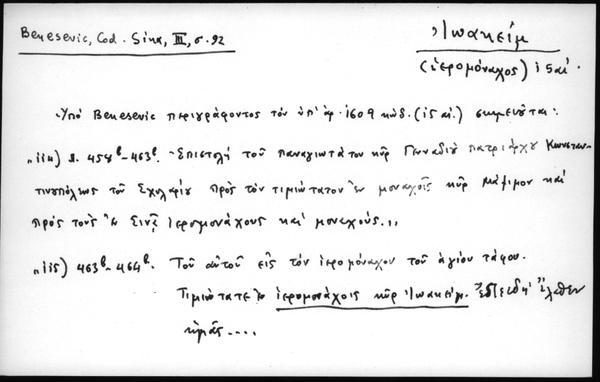 Benesevic, Cod. Sina, III, σ. 92
Ἰωακείμ
(ἱερομόναχος) ιςαἰ.
Ὑπὸ Benesevic περιγράφοντος τὸν ὑπ' ἀρ. 1609 κώδ. (ις αἰ.) σημειοῦται:
"114) λ. 458β-463β. Ἐπιστολὴ τοῦ παναγιωτάτου κῦρ Γενναδίου πατριάρχου Κωνσταν-
τινουπόλεως τοῦ Σχολαρίου πρὸς τὸν τιμιώτατον ἐν μοναχοῖς κῦρ Μάξιμον καὶ
πρὸς τοὺς ἐν Σινᾷ ἱερομονάχους καὶ μοναχούς.,,
"115) 463β-464β. Τοῦ αὐτοῦ εἰς τὸν ἱερομόναχον τοῦ ἁγίου τάφου.
Τιμιώτατε ἐν ἱερομονάχοις κῦρ Ἰωακείμ.
ἡμᾶς....